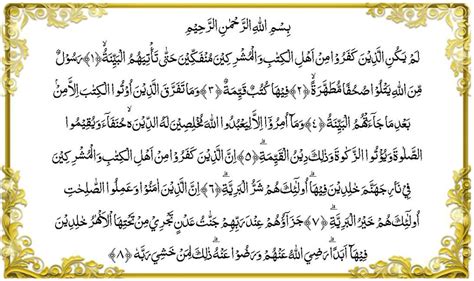 بِسْمِ اللهِ الرَّحْمٰنِ الرَّحِيْمِ
لَمْ يَكُنِ الَّذِيْنَ كَفَرُوْا مِنْ اَهْلِ الْكِتٰبِ وَالْمُشْرِكِيْنَ مُنْفَكِّيْنَ حَتّٰى تَأْتِيَهُمُ الْبَيِّنَةُ ﴿١﴾ رَسُوْلٌ
مِّنَ اللهِ يَتْلُوْا صُحُفًا مُّطَهَّرَةً ﴿٢﴾ فِيْهَا كُتُبٌ قَيِّمَةٌ ﴿٣﴾ وَمَا تَفَرَّقَ الَّذِيْنَ اُوْتُوا الْكِتٰبَ اِلَّا مِنْۢ
بَعْدِ مَا جَآءَتْهُمُ الْبَيِّنَةُ ﴿٤﴾ وَمَآ اُمِرُوْٓا اِلَّا لِيَعْبُدُوا اللهَ مُخْلِصِيْنَ لَهُ الدِّيْنَ ەۙ حُنَفَآءَ وَيُقِيْمُوا
الصَّلٰوةَ وَيُؤْتُوا الزَّكٰوةَ وَذٰلِكَ دِيْنُ الْقَيِّمَةِ ﴿٥﴾ اِنَّ الَّذِيْنَ كَفَرُوْا مِنْ اَهْلِ الْكِتٰبِ وَالْمُشْرِكِيْنَ
فِيْ نَارِ جَهَنَّمَ خٰلِدِيْنَ فِيْهَاۗ اُولٰٓئِكَ هُمْ شَرُّ الْبَرِيَّةِ ﴿٦﴾ اِنَّ الَّذِيْنَ اٰمَنُوْا وَعَمِلُوا الصّٰلِحٰتِ
اُولٰٓئِكَ هُمْ خَيْرُ الْبَرِيَّةِ ﴿٧﴾ جَزَآؤُهُمْ عِنْدَ رَبِّهِمْ جَنّٰتُ عَدْنٍ تَجْرِيْ مِنْ تَحْتِهَا الْاَنْهٰرُ خٰلِدِيْنَ
فِيْهَآ اَبَدًاۗ رَضِيَ اللهُ عَنْهُمْ وَرَضُوْا عَنْهُۗ ذٰلِكَ لِمَنْ خَشِيَ رَبَّهٗ ﴿٨﴾